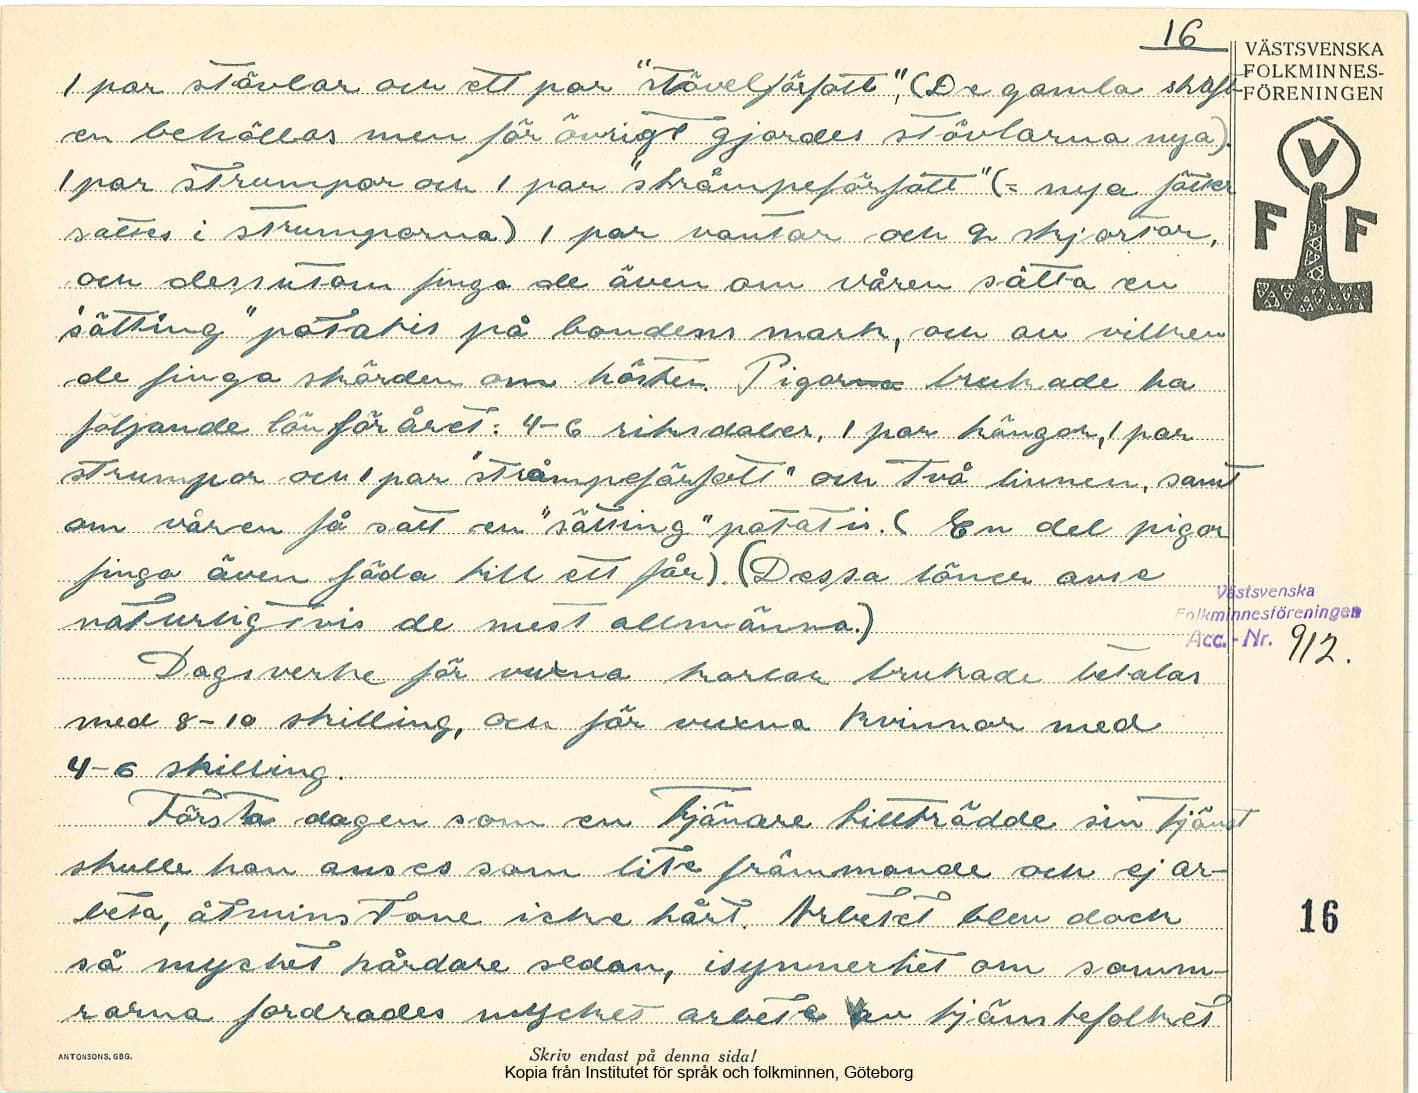 16
VÄSTSVENSKA
FOLKMINNES-
FÖRENINGEN
V
F F
1 par stövlar och ett par "stövelförfött", (De gamla skaft-
en behöllos men för övrigt gjordes stövlarna nya).
1 par strumpor och 1 par "stråmpeförfött" (= nya fötter
sattes i strumporna) 1 par vantar och 2 skjortor,
och dessutom fingo de även om våren sätta en
"sätting" potatis på bondens mark, och av vilken
de finga skörden om hösten. Pigorna brukade ha
följande lön för året: 4-6 riksdaler, 1 par kängor, 1 par
strumpor och 1 par "stråmpeförfött" och två linnen, samt
om våren få satt en "sätting" potatis. ( En del pigor
finga även föda till ett får) (Dessa löner avse
naturligtvis de mest allmänna.)
Västsvenska
Folkminnesföreningen
Acc. - Nr. 912.
Dagsverke för vuxna karlar brukade betalas
med 8-10 skilling, och för vuxna kvinnor med
4-6 skilling.
Första dagen som en tjänare tillträdde sin tjänst
skulle han anses som lite främmande och ej ar-
beta, åtminstone icke hårt. Arbetet blev dock
så mycket hårdare sedan, isynnerhet om somm-
rarna fordrades mycket arbete av tjänstefolket
16
ANTONSONS, GBG.
Skriv endast på denna sida!
Kopia från Institutet för språk och folkminnen, Göteborg